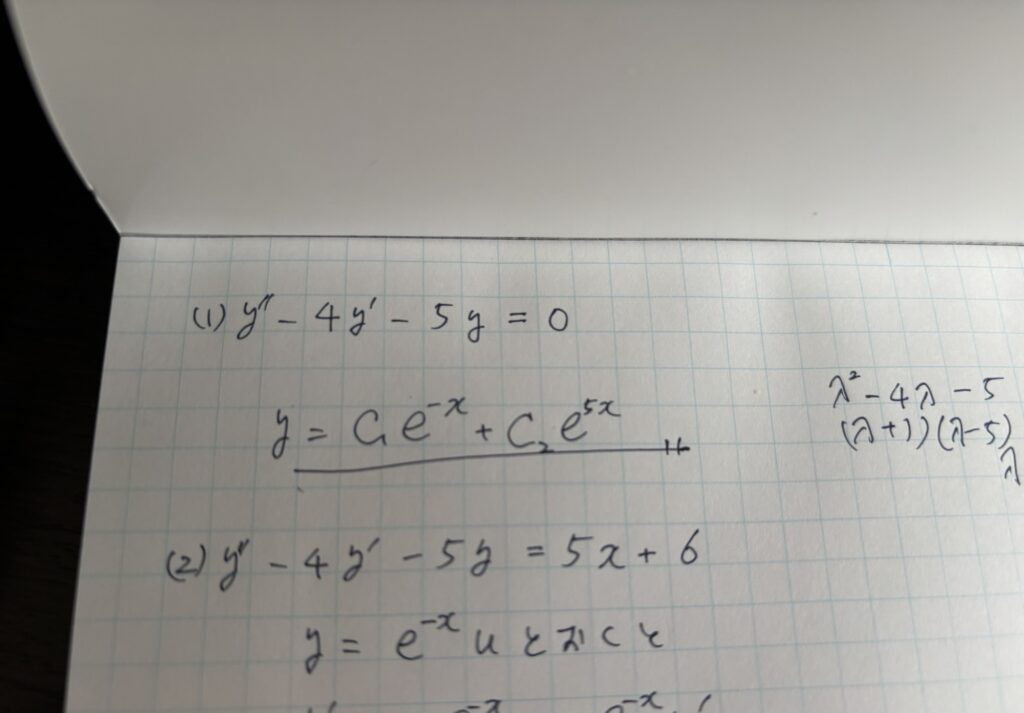 (1) y'' - 4y' - 5y = 0
y = C₁e^{-x} + C₂e^{5x}
λ² - 4λ - 5
(λ+1)(λ-5)
λ
(2) y'' - 4y' - 5y = 5x + 6
y = e^{-x}u とおくと